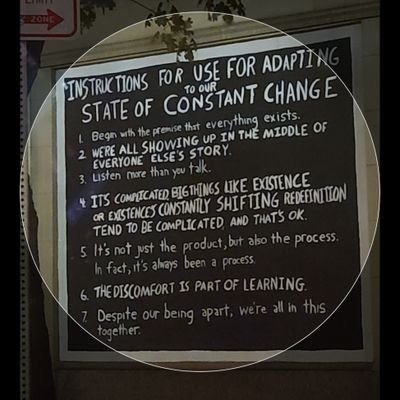 LIMIT
ZONE
INSTRUCTIONS FOR USE FOR ADAPTING
TO OUR
STATE OF CONSTANT CHANGE
1. Begin with the premise that everything exists.
2. WE'RE ALL SHOWING UP IN THE MIDDLE OF
EVERYONE ELSE'S STORY.
3. Listen more than you talk.
4. ITS COMPLICATED, BIG THINGS LIKE EXISTENCE
OR EXISTENCE'S CONSTANTLY SHIFTING REDEFINITION
TEND TO BE COMPLICATED, AND THAT'S OK.
5. It's not just the product, but also the process.
In fact, it's always been a process.
6. THE DISCOMFORT IS PART OF LEARNING.
7. Despite our being apart, we're all in this
together.